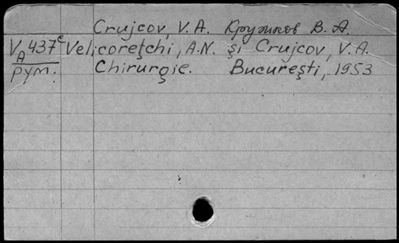 Crujcov, V. A. Кружков В. А.
V 437ᵉ Velicorețchi, A.N. și Crujcov, V.A.
A
рум. Chirurgie. București, 1953